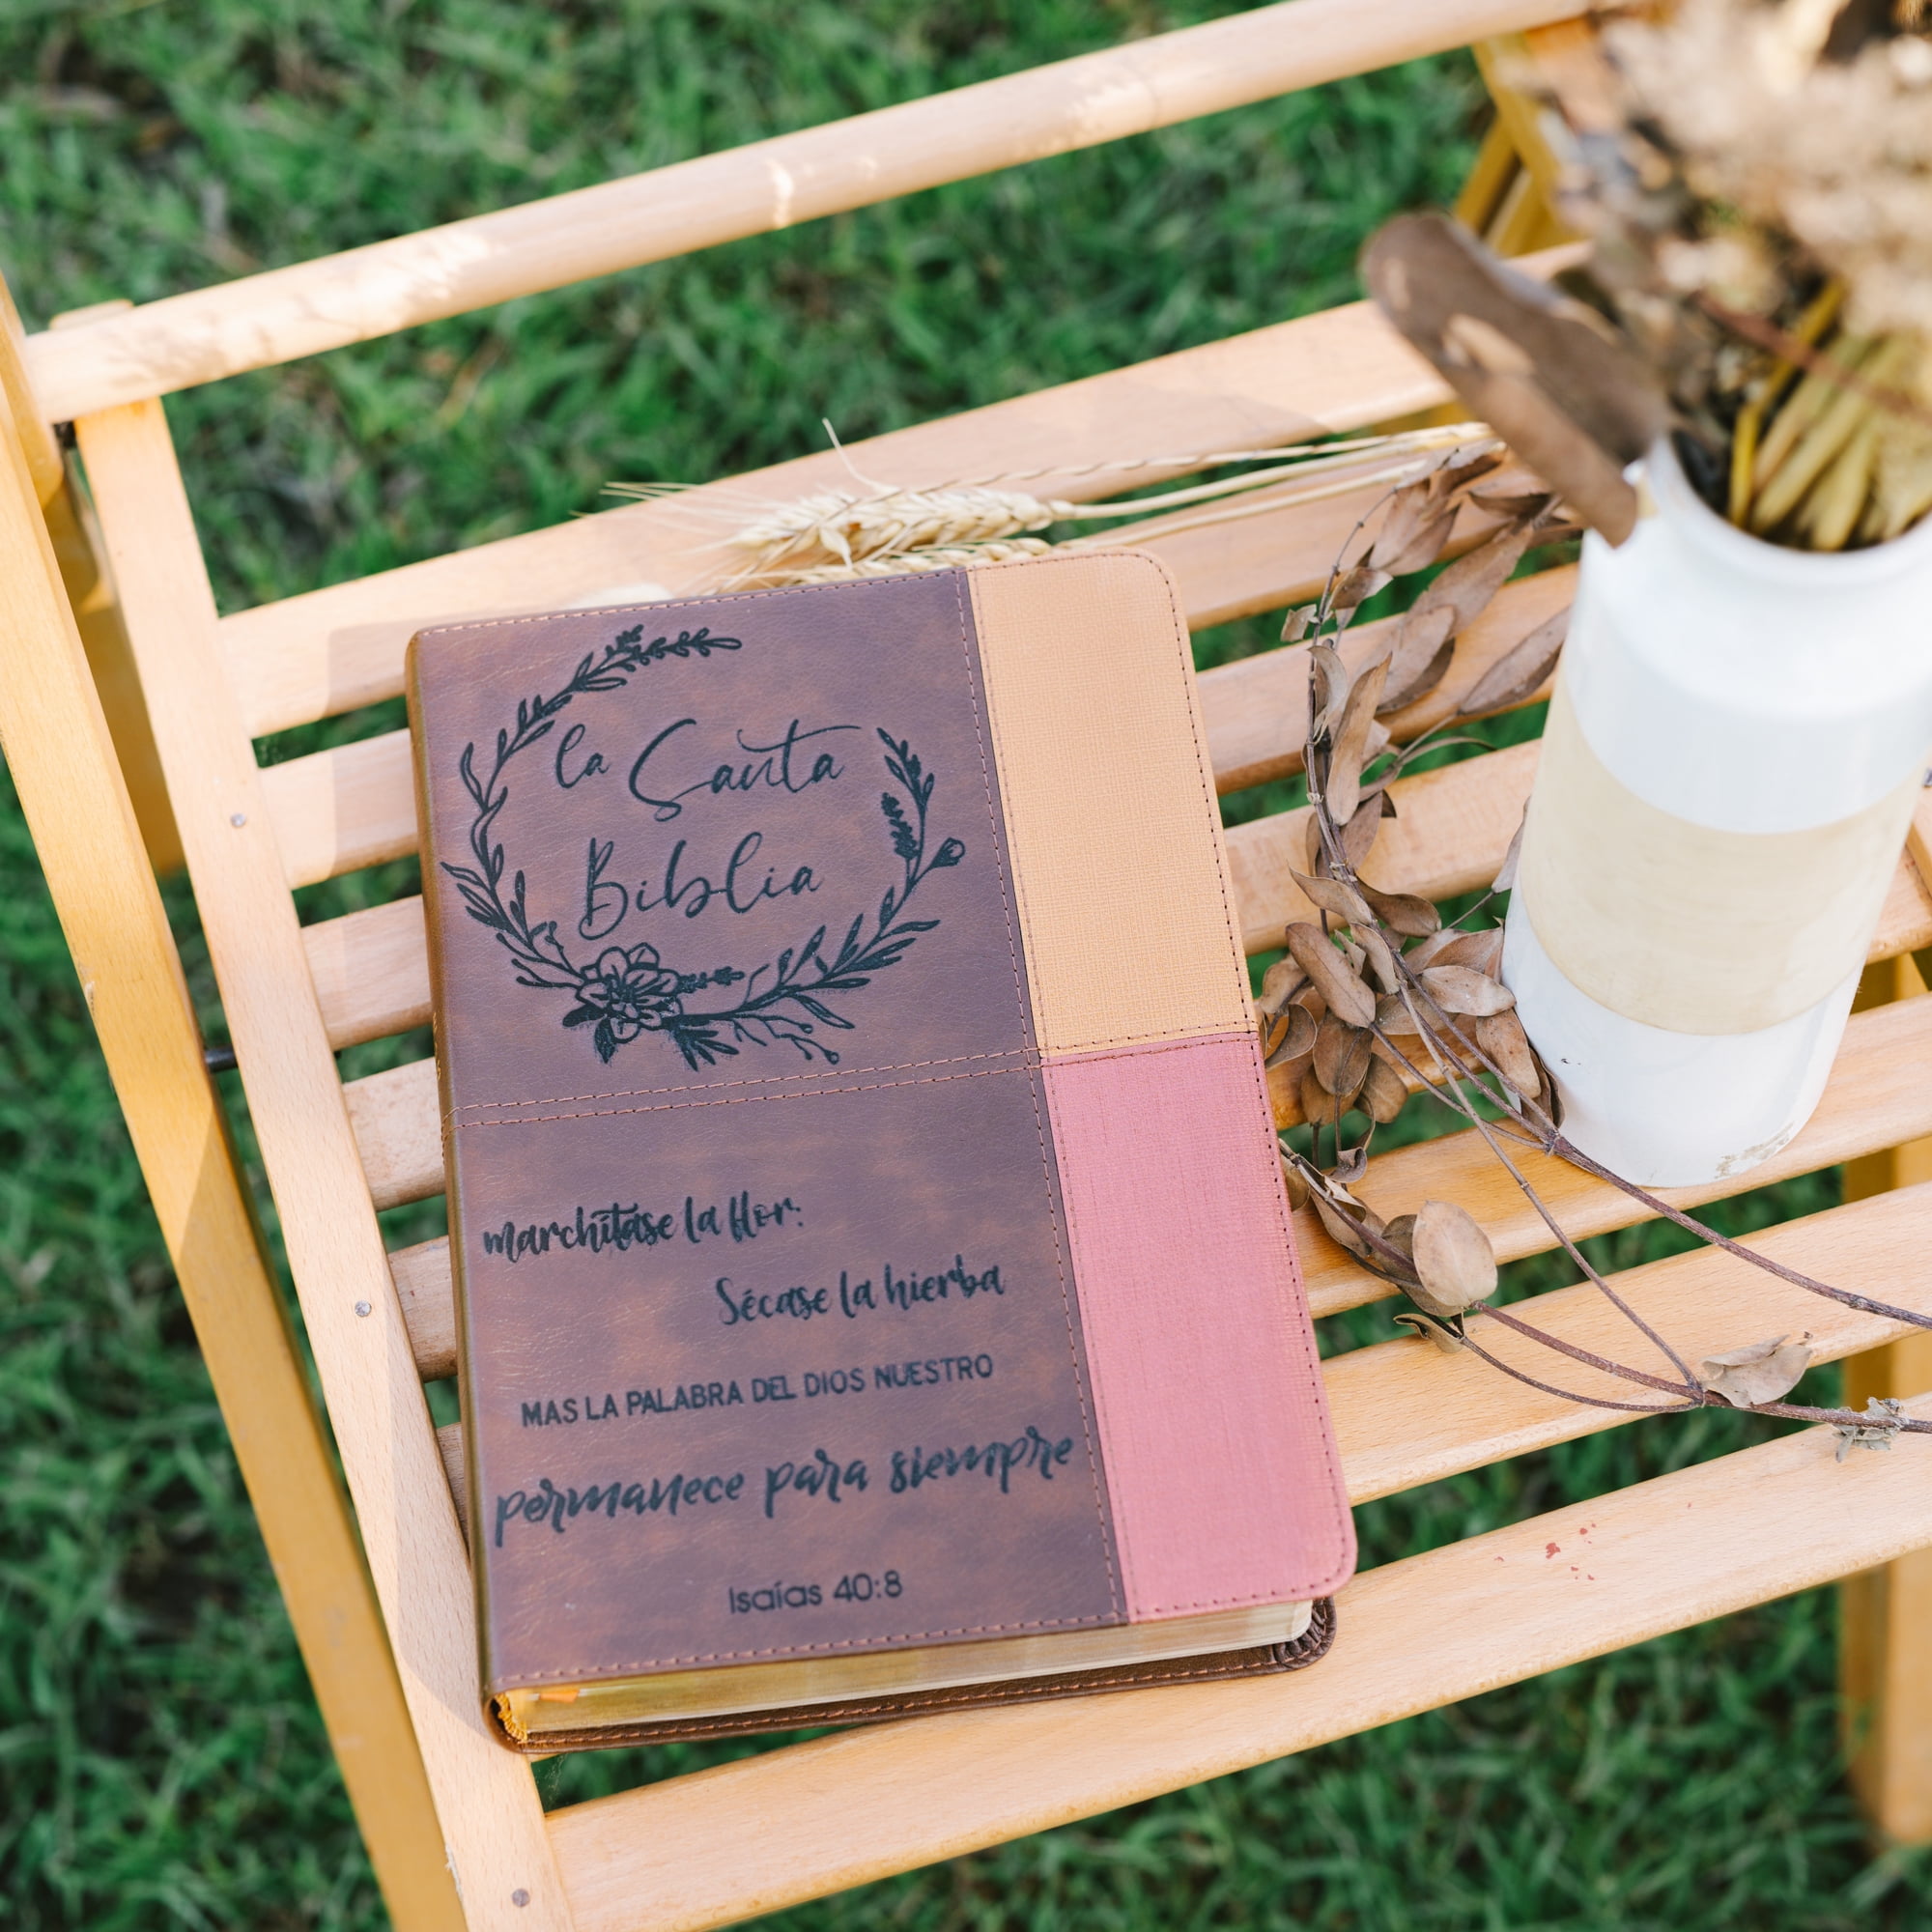 la Santa
Biblia
marchítase la flor:
Sécase la hierba
MAS LA PALABRA DEL DIOS NUESTRO
permanece para siempre
Isaías 40:8